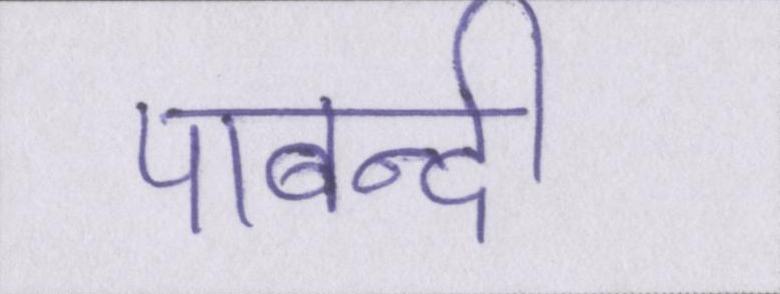 पाबन्दी